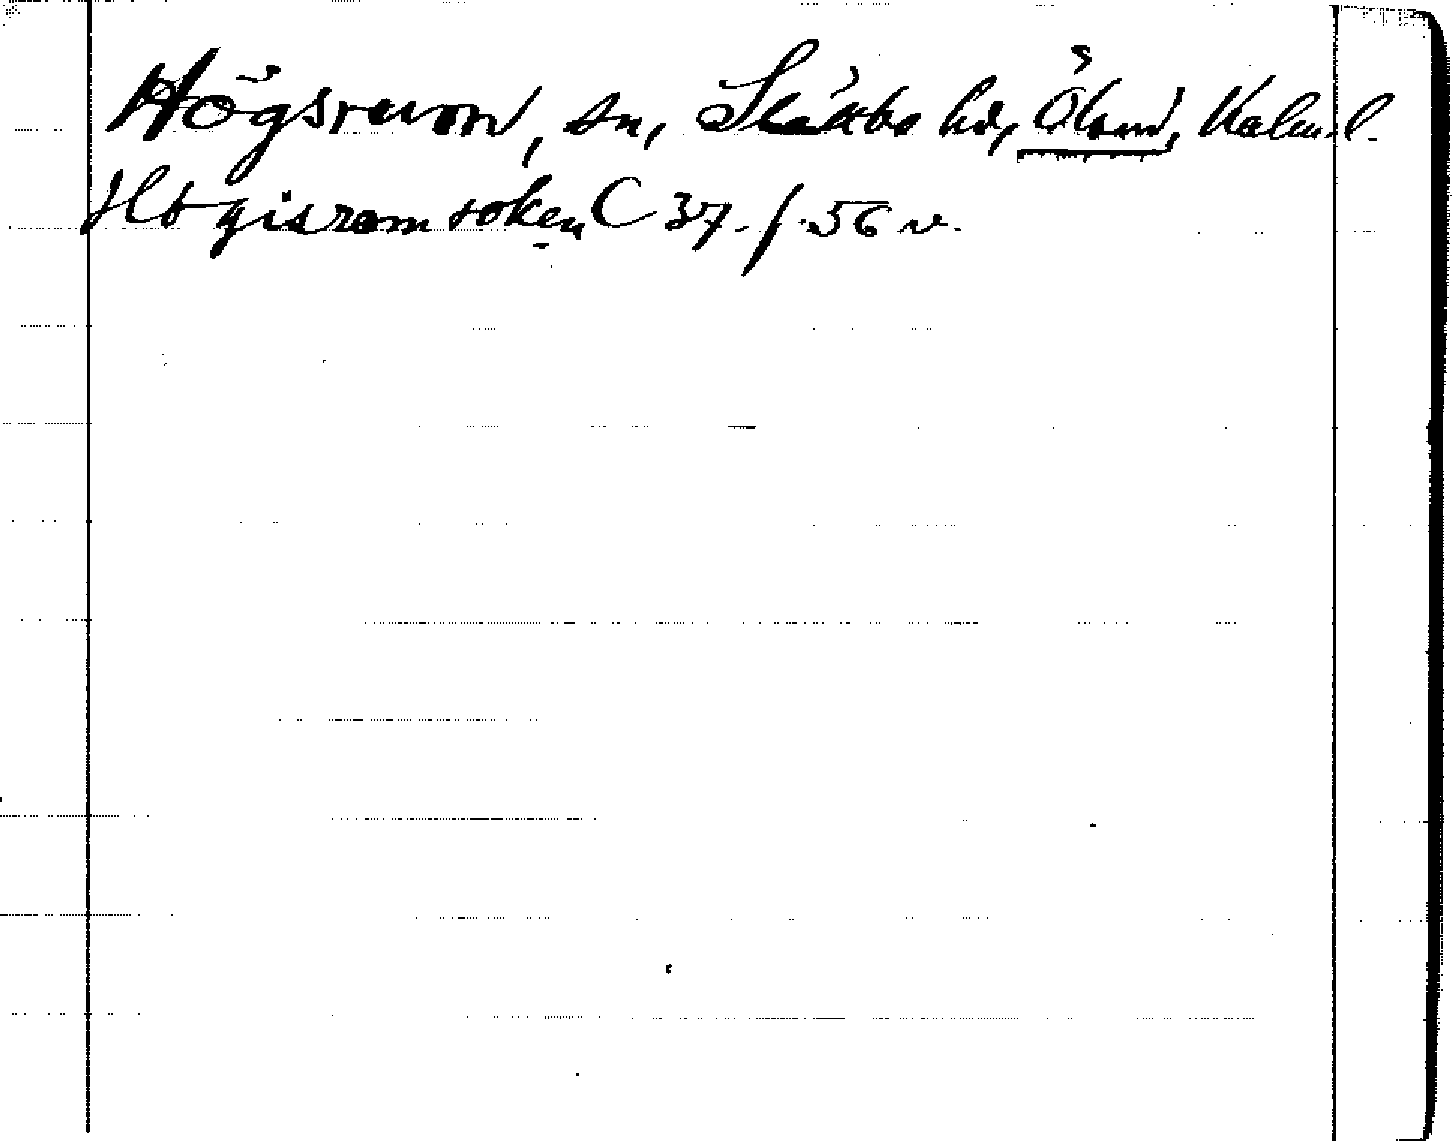 Högsrum, sn, Slättbo hd, Öland, Kalm.l.
Høgisrom soken C 37. f. 56 v.